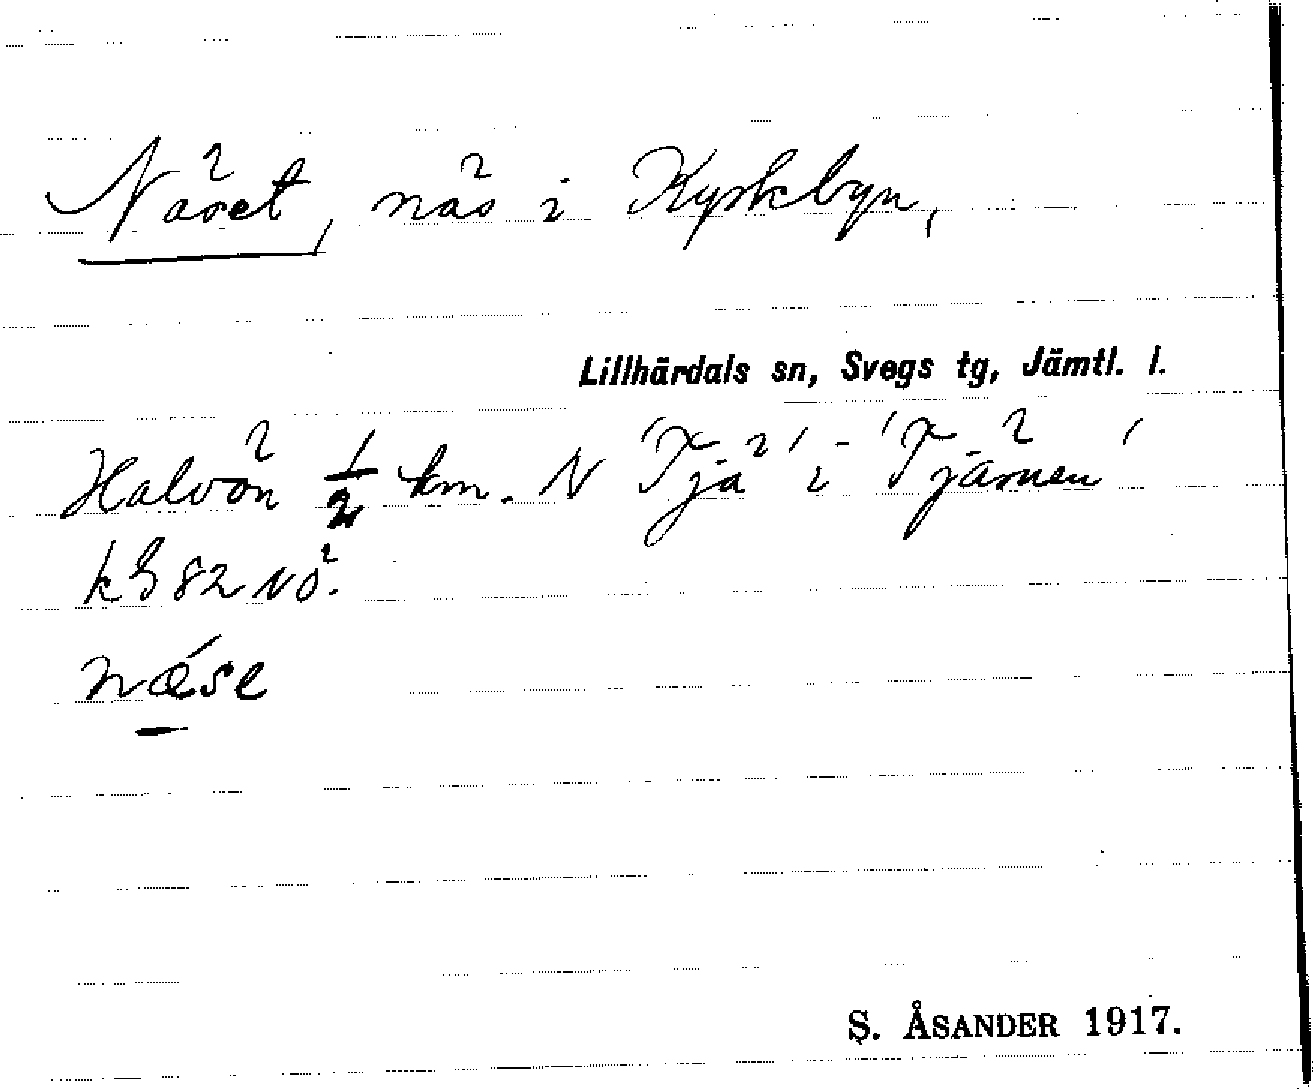 Näset, näs i Kyrkbyn,
Lillhärdals sn, Svegs tg, Jämtl. l.
Halvön 1/2 km. N 'Tjä' i 'Tjärnen'
kB 82 NÖ.
næ´se
S. ÅSANDER 1917.